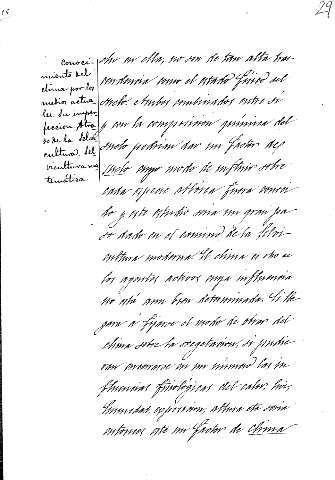 29
Conoci-
miento del
clima por los
medios actua-
les. Su imper-
feccion. Atra-
so de la Selvi-
cultura. Sel-
vicultura ma-
temática.
cho en ella, no son de tan alta tras-
cendencia como el estado fisico del
suelo. Ambos combinados entre si
y con la composicion quimica del
suelo podrian dar un factor de
suelo cuyo modo de influir sobre
cada especie arborea fuera conoci-
do y este estudio seria un gran pa-
so dado en el camino de la Selvi-
cultura moderna. El clima es otro de
los agentes activos cuya influencia
no está aun bien determinada. Si lle-
gara á fijarse el modo de obrar del
clima sobre la vegetacion, si pudie-
ran encerrarse en un número las in-
fluencias fisiológicas del calor, luz,
humedad, exposicion, altura etc seria
entonces este un factor de clima